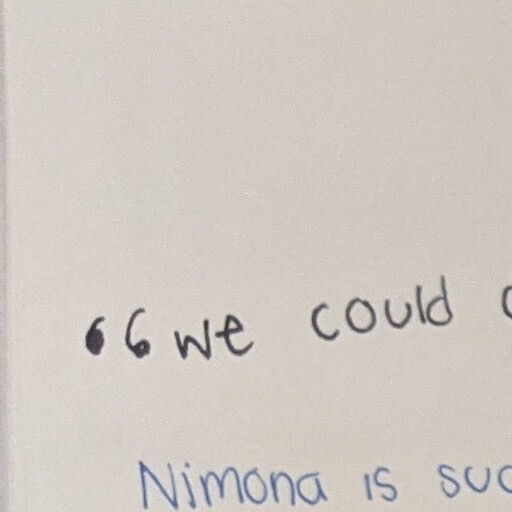 “we could
Nimona is